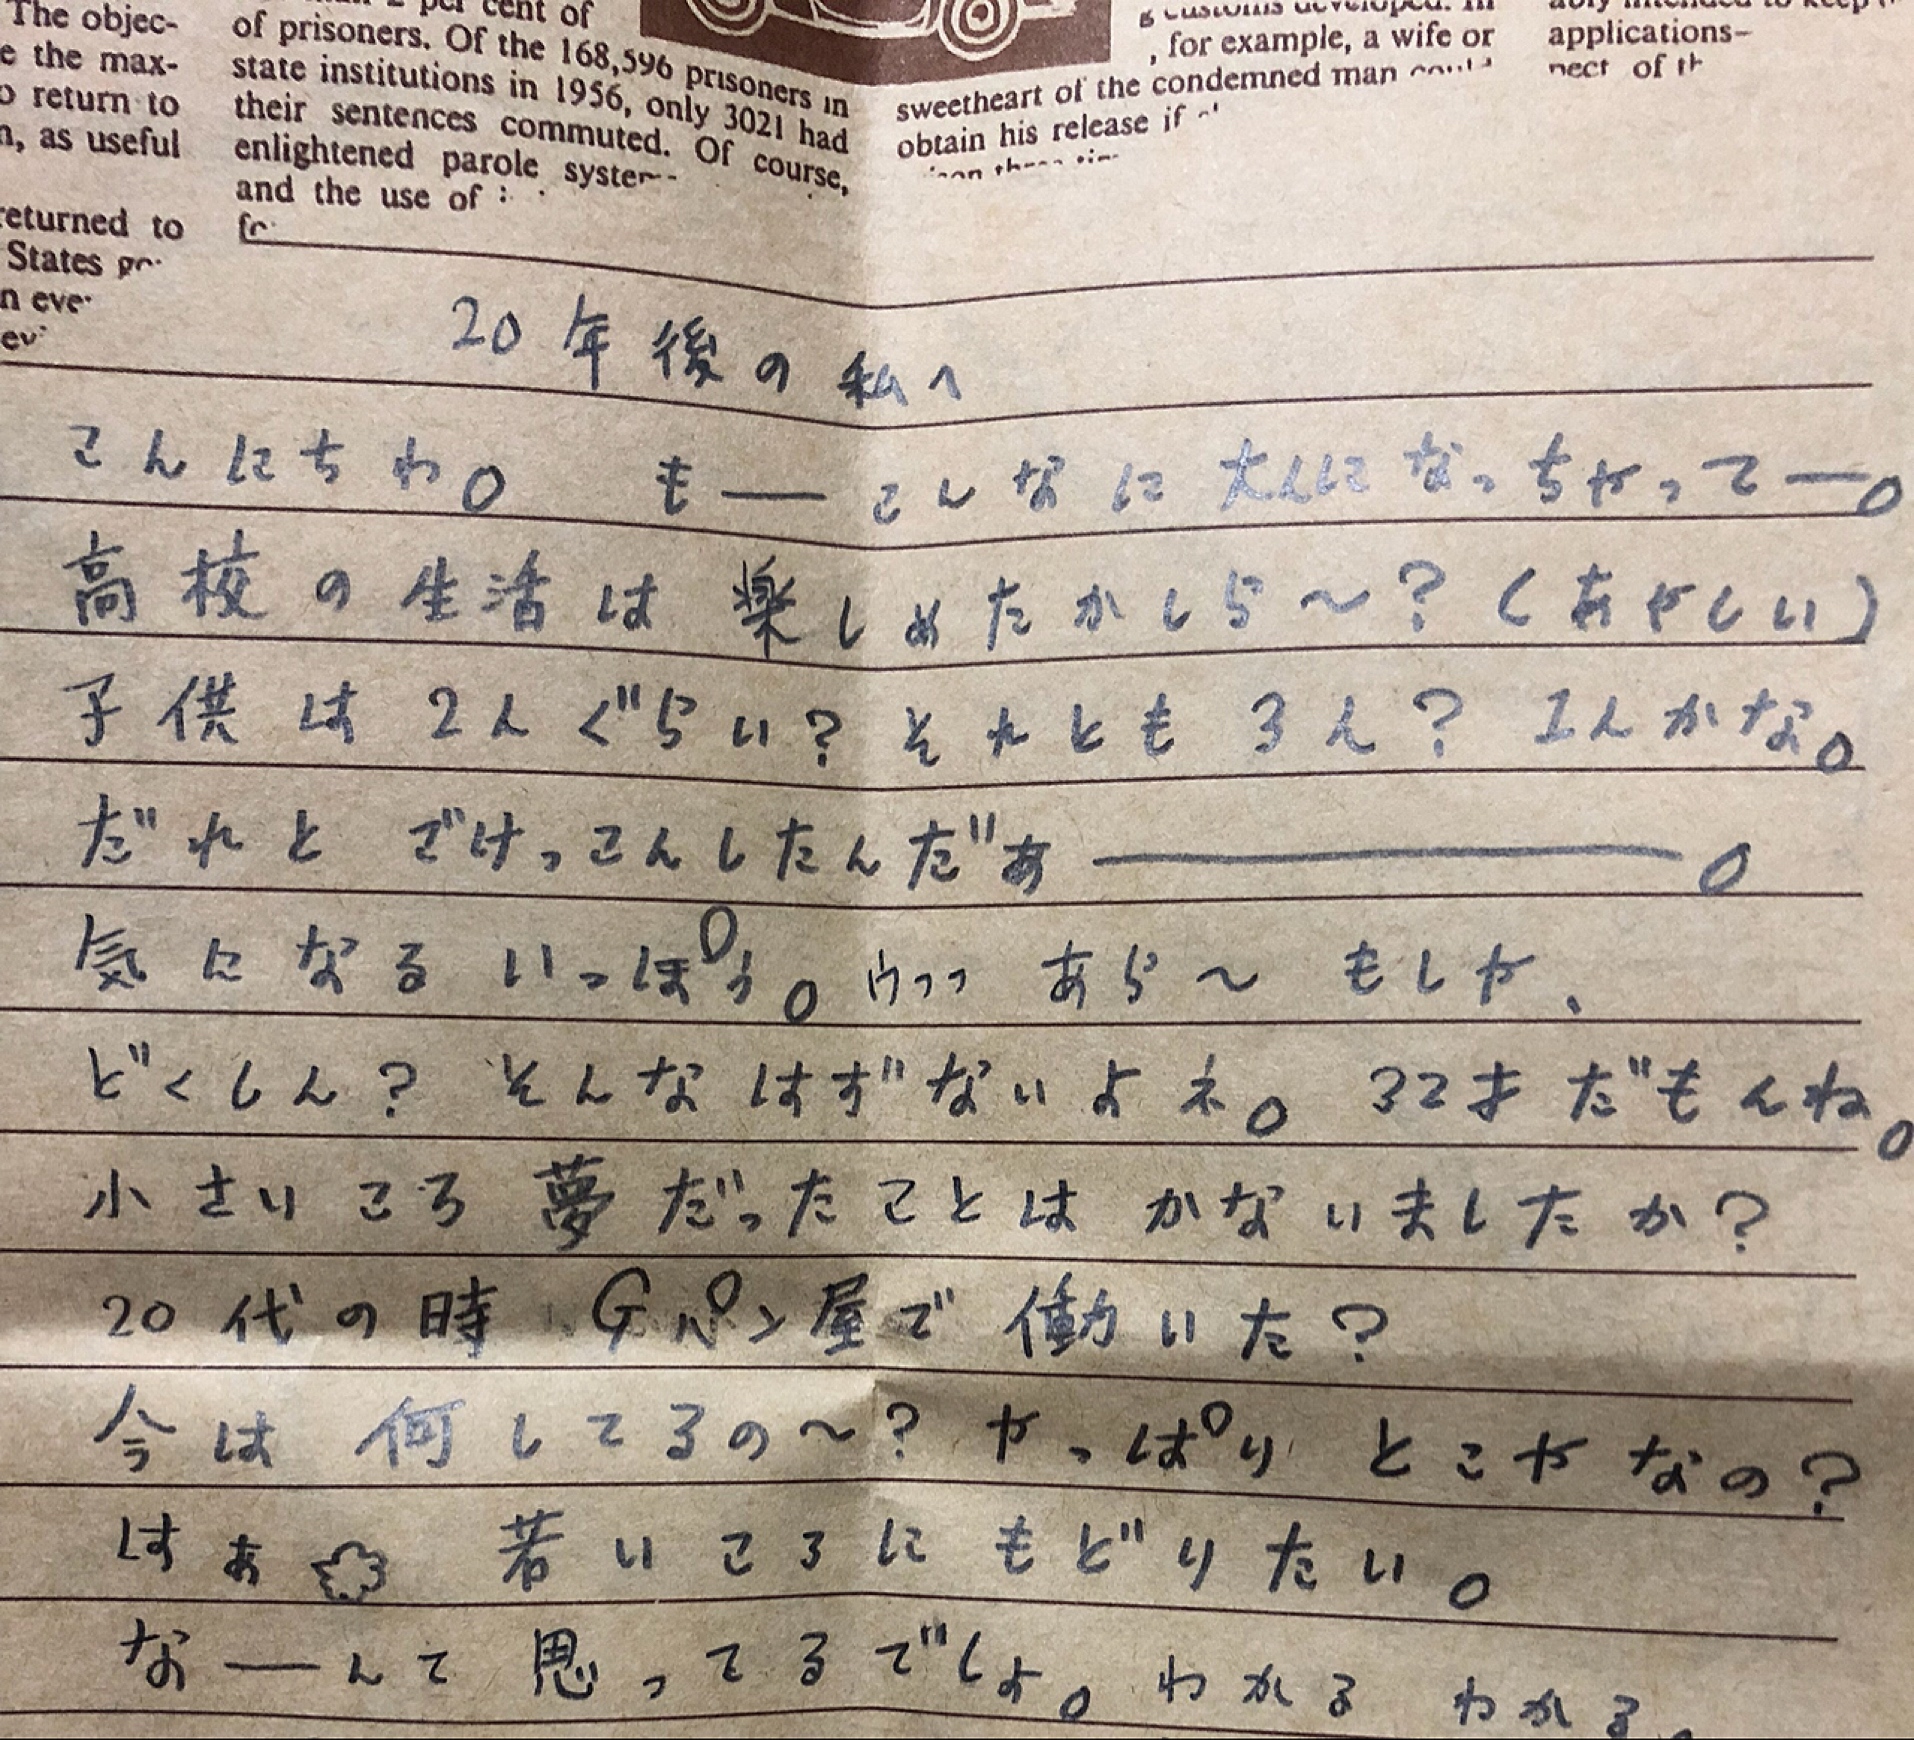 The objec-
e the max-
o return to
n, as useful
returned to
States
n eve
ev
per cent of
of prisoners. Of the 168,596 prisoners in
state institutions in 1956, only 3021 had
their sentences commuted. Of course,
enlightened parole system
and the use of
customs developed. In
, for example, a wife or
sweetheart of the condemned man could
obtain his release if
applications-
pect of th
20年後の私へ
こんにちわ。 もーこんなに大人になっちゃってー。
高校の生活は楽しめたかしら〜?(あやしい)
子供は2人ぐらい? それとも3人? 1人かな。
だれと でけっこんしたんだぁー。
気になるいっぽう。ウフフ あら〜 もしや、
どくしん? そんなはずないよネ。 32才だもんね。
小さいころ夢だったことは かないましたか?
20代の時 Gパン屋で働いた?
今は 何してるの〜? やっぱり とこやなの?
はぁ 若いころにもどりたい。
なーんて 思ってるでしょ。わかる わかる。